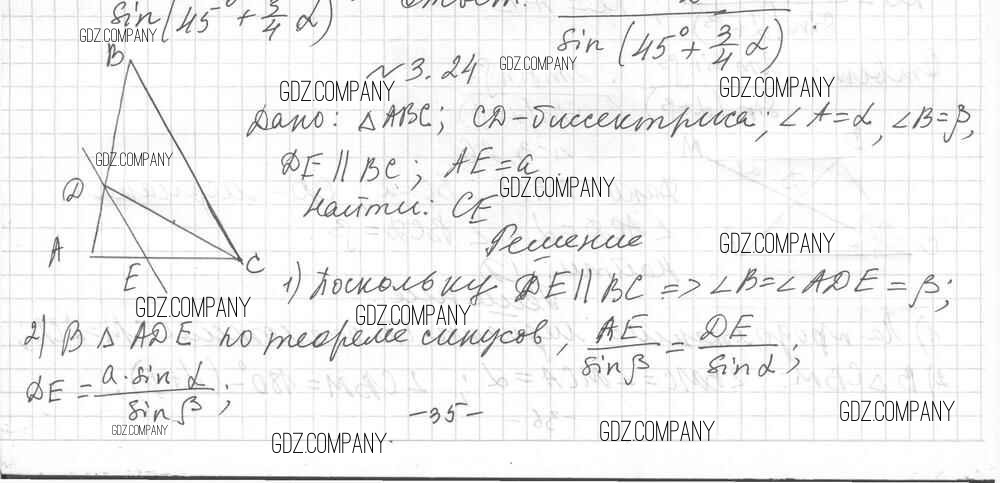 sin(45° + 3/4 α)
sin(45° + 3/4 α)
GDZ.COMPANY
GDZ.COMPANY
№ 3.24
GDZ.COMPANY
GDZ.COMPANY
B
Дано: △ABC; CD-биссектриса; ∠A=α, ∠B=β,
GDZ.COMPANY
DE || BC; AE = a
GDZ.COMPANY
D
Найти: CE
Решение
GDZ.COMPANY
A
E
C
1) Поскольку DE || BC => ∠B=∠ADE = β;
GDZ.COMPANY
GDZ.COMPANY
2) В △ ADE по теореме синусов, AE/sin β = DE/sin α;
DE = a·sin α/sin β;
-35-
GDZ.COMPANY
GDZ.COMPANY
GDZ.COMPANY
GDZ.COMPANY